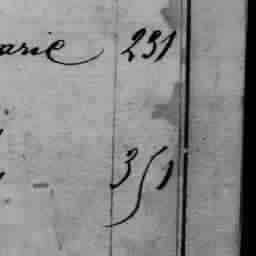 arie 231
351